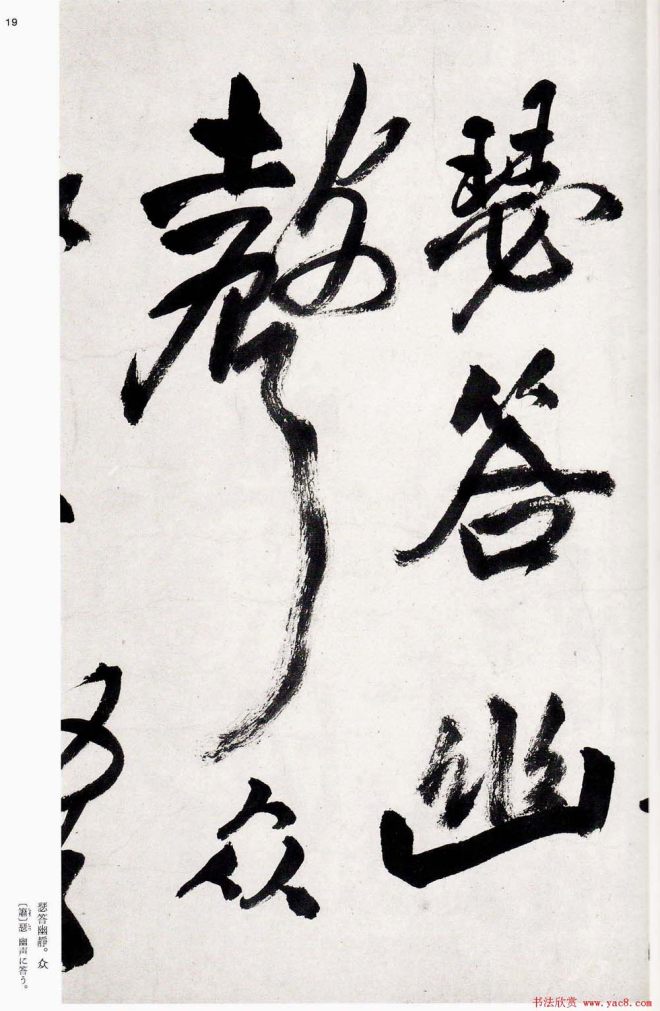 19
瑟答幽
聲众
瑟答幽聲。众
〔簫〕瑟 幽声に答う。
书法欣赏 www.yac8.com